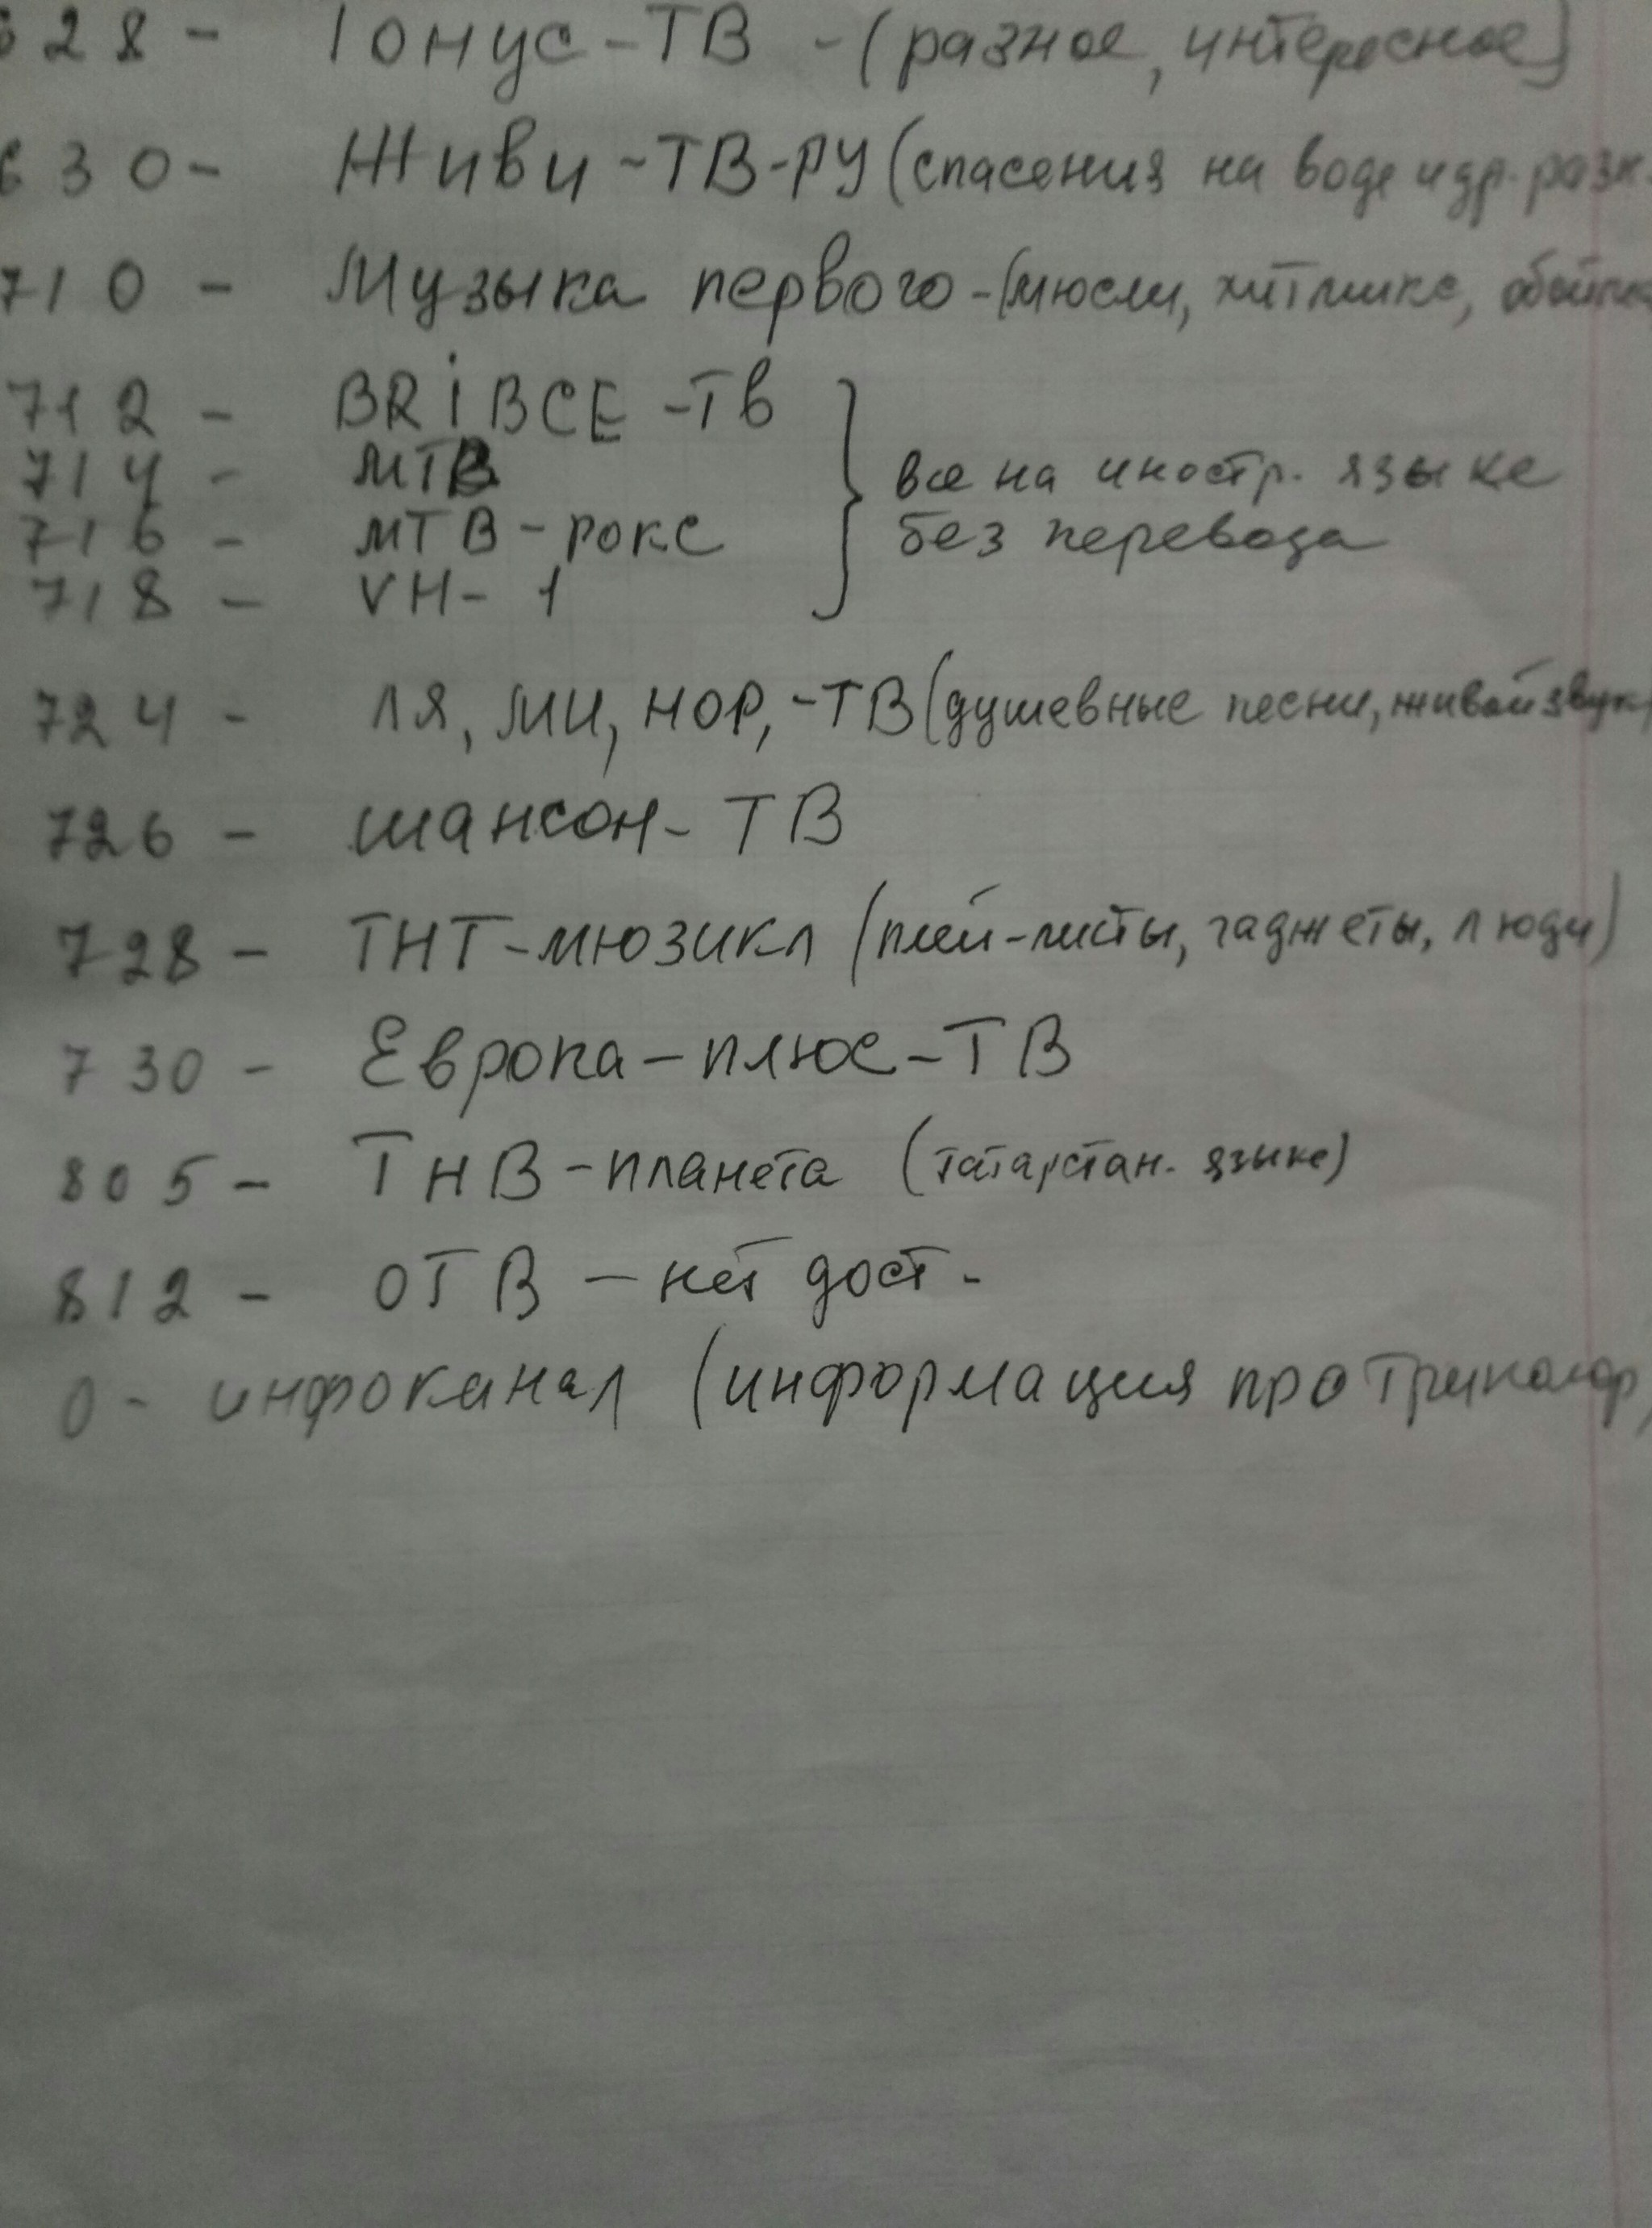 628 - Тонус-ТВ - (разное, интересное)
630 - Живи-ТВ-РУ (спасения на воде и др. разн.
710 - Музыка первого - (мюсли, хитмикс,
712 - BRiBCE-ТВ
714 - МТВ
716 - МТВ-рокс
718 - VH-1
все на иностр. языке
без перевода
724 - ЛЯ, МИ, НОР,-ТВ (душевные песни, живой звук)
726 - шансон-ТВ
728 - ТНТ-мюзикл (плей-листы, гаджеты, люди)
730 - Европа-плюс-ТВ
805 - ТНВ-планета (татарстан. языке)
812 - ОТВ - нет дост.
0 - инфоканал (информация про Триколор)